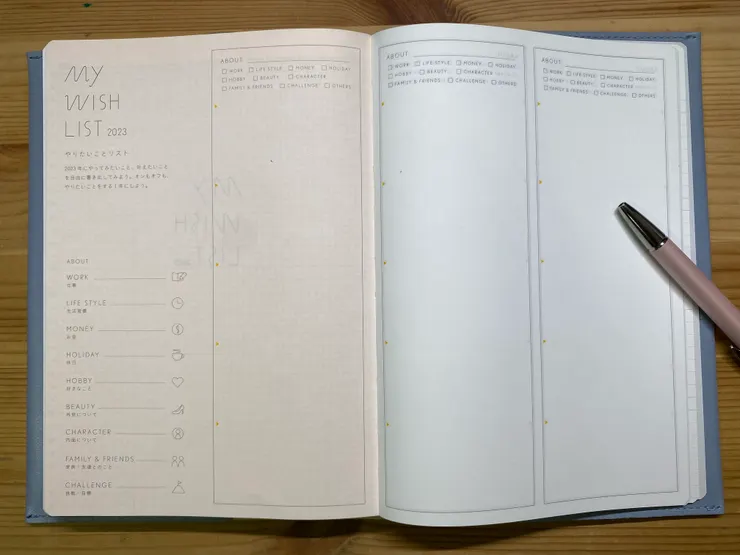 MY
WISH
LIST 2023
やりたいことリスト
2023年にやってみたいこと、叶えたいこと
を自由に書き出してみよう。オンもオフも
やりたいことをする1年にしよう。
ABOUT
WORK
仕事
LIFE STYLE
生活習慣
MONEY
お金
HOLIDAY
休日
HOBBY
好きなこと
BEAUTY
外見について
CHARACTER
内面について
FAMILY & FRIENDS
家族・友達とのこと
CHALLENGE
挑戦・目標
ABOUT:
WORK LIFE STYLE MONEY HOLIDAY
HOBBY BEAUTY CHARACTER
FAMILY & FRIENDS CHALLENGE OTHERS
ABOUT:
WORK LIFE STYLE MONEY HOLIDAY
HOBBY BEAUTY CHARACTER
FAMILY & FRIENDS CHALLENGE OTHERS
ABOUT:
WORK LIFE STYLE MONEY HOLIDAY
HOBBY BEAUTY CHARACTER
FAMILY & FRIENDS CHALLENGE OTHERS